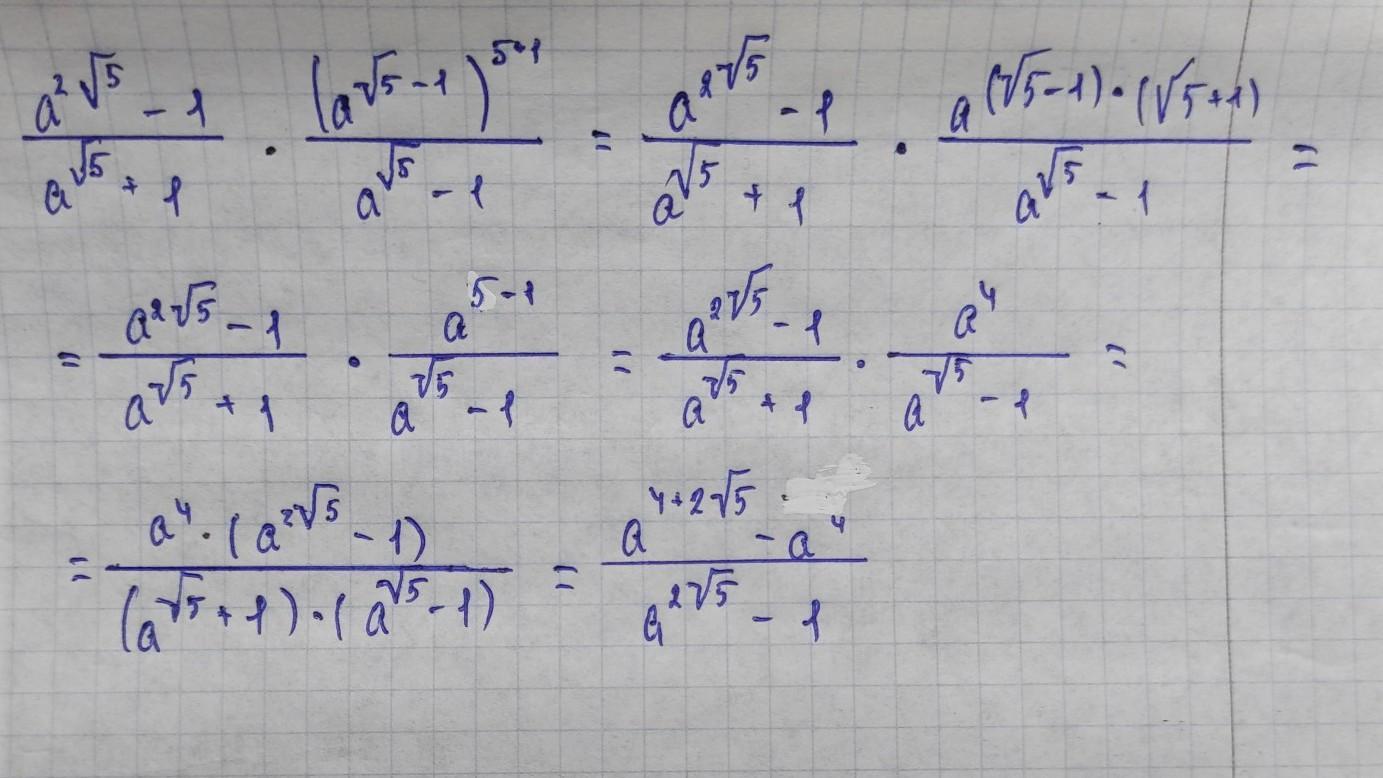 \frac{a^{2\sqrt{5}} - 1}{a^{\sqrt{5}} + 1} \cdot \frac{(a^{\sqrt{5} - 1})^{5+1}}{a^{\sqrt{5}} - 1} = \frac{a^{2\sqrt{5}} - 1}{a^{\sqrt{5}} + 1} \cdot \frac{a^{(\sqrt{5} - 1) \cdot (\sqrt{5} + 1)}}{a^{\sqrt{5}} - 1} =
= \frac{a^{2\sqrt{5}} - 1}{a^{\sqrt{5}} + 1} \cdot \frac{a^{5 - 1}}{a^{\sqrt{5}} - 1} = \frac{a^{2\sqrt{5}} - 1}{a^{\sqrt{5}} + 1} \cdot \frac{a^{4}}{a^{\sqrt{5}} - 1} =
= \frac{a^{4} \cdot (a^{2\sqrt{5}} - 1)}{(a^{\sqrt{5}} + 1) \cdot (a^{\sqrt{5}} - 1)} = \frac{a^{4 + 2\sqrt{5}} - a^{4}}{a^{2\sqrt{5}} - 1}